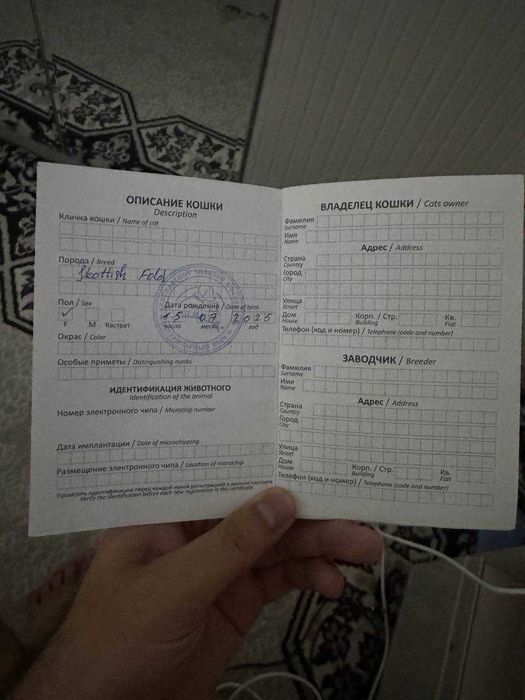 ОПИСАНИЕ КОШКИ
Description
Кличка кошки / Name of cat
Порода / Breed
Skottish Fold
Пол / Sex
Дата рождения / Date of birth
✓ 15 07 2025
F М Кастрат число месяц год
Окрас / Color
Особые приметы / Distinguishing marks
ИДЕНТИФИКАЦИЯ ЖИВОТНОГО
Identification of the animal
Номер электронного чипа / Microchip number
Дата имплантации / Date of microchipping
Размещение электронного чипа / Location of microchip
Проверить идентификацию перед каждой новой регистрацией в данном паспорте
Verify the identification before each new registration in this certificate
ВЛАДЕЛЕЦ КОШКИ / Cats owner
Фамилия
Surname
Имя
Name
Адрес / Address
Страна
Country
Город
City
Улица
Street
Дом Корп. / Стр. Кв.
House Building Flat
Телефон (код и номер) / Telephone (code and number)
ЗАВОДЧИК / Breeder
Фамилия
Surname
Имя
Name
Адрес / Address
Страна
Country
Город
City
Улица
Street
Дом Корп. / Стр. Кв.
House Building Flat
Телефон (код и номер) / Telephone (code and number)